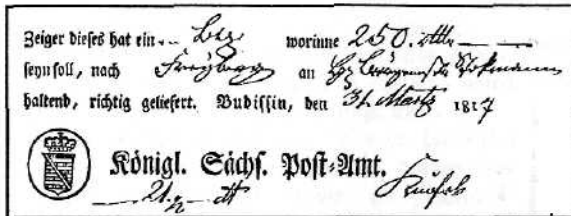 Zeiger dieses hat ein worinne 250. rthlr
seyn soll, nach Freyberg an
haltend, richtig geliefert. Budissin, den 31. Martz 1817
Königl. Sächs. Post-Amt.